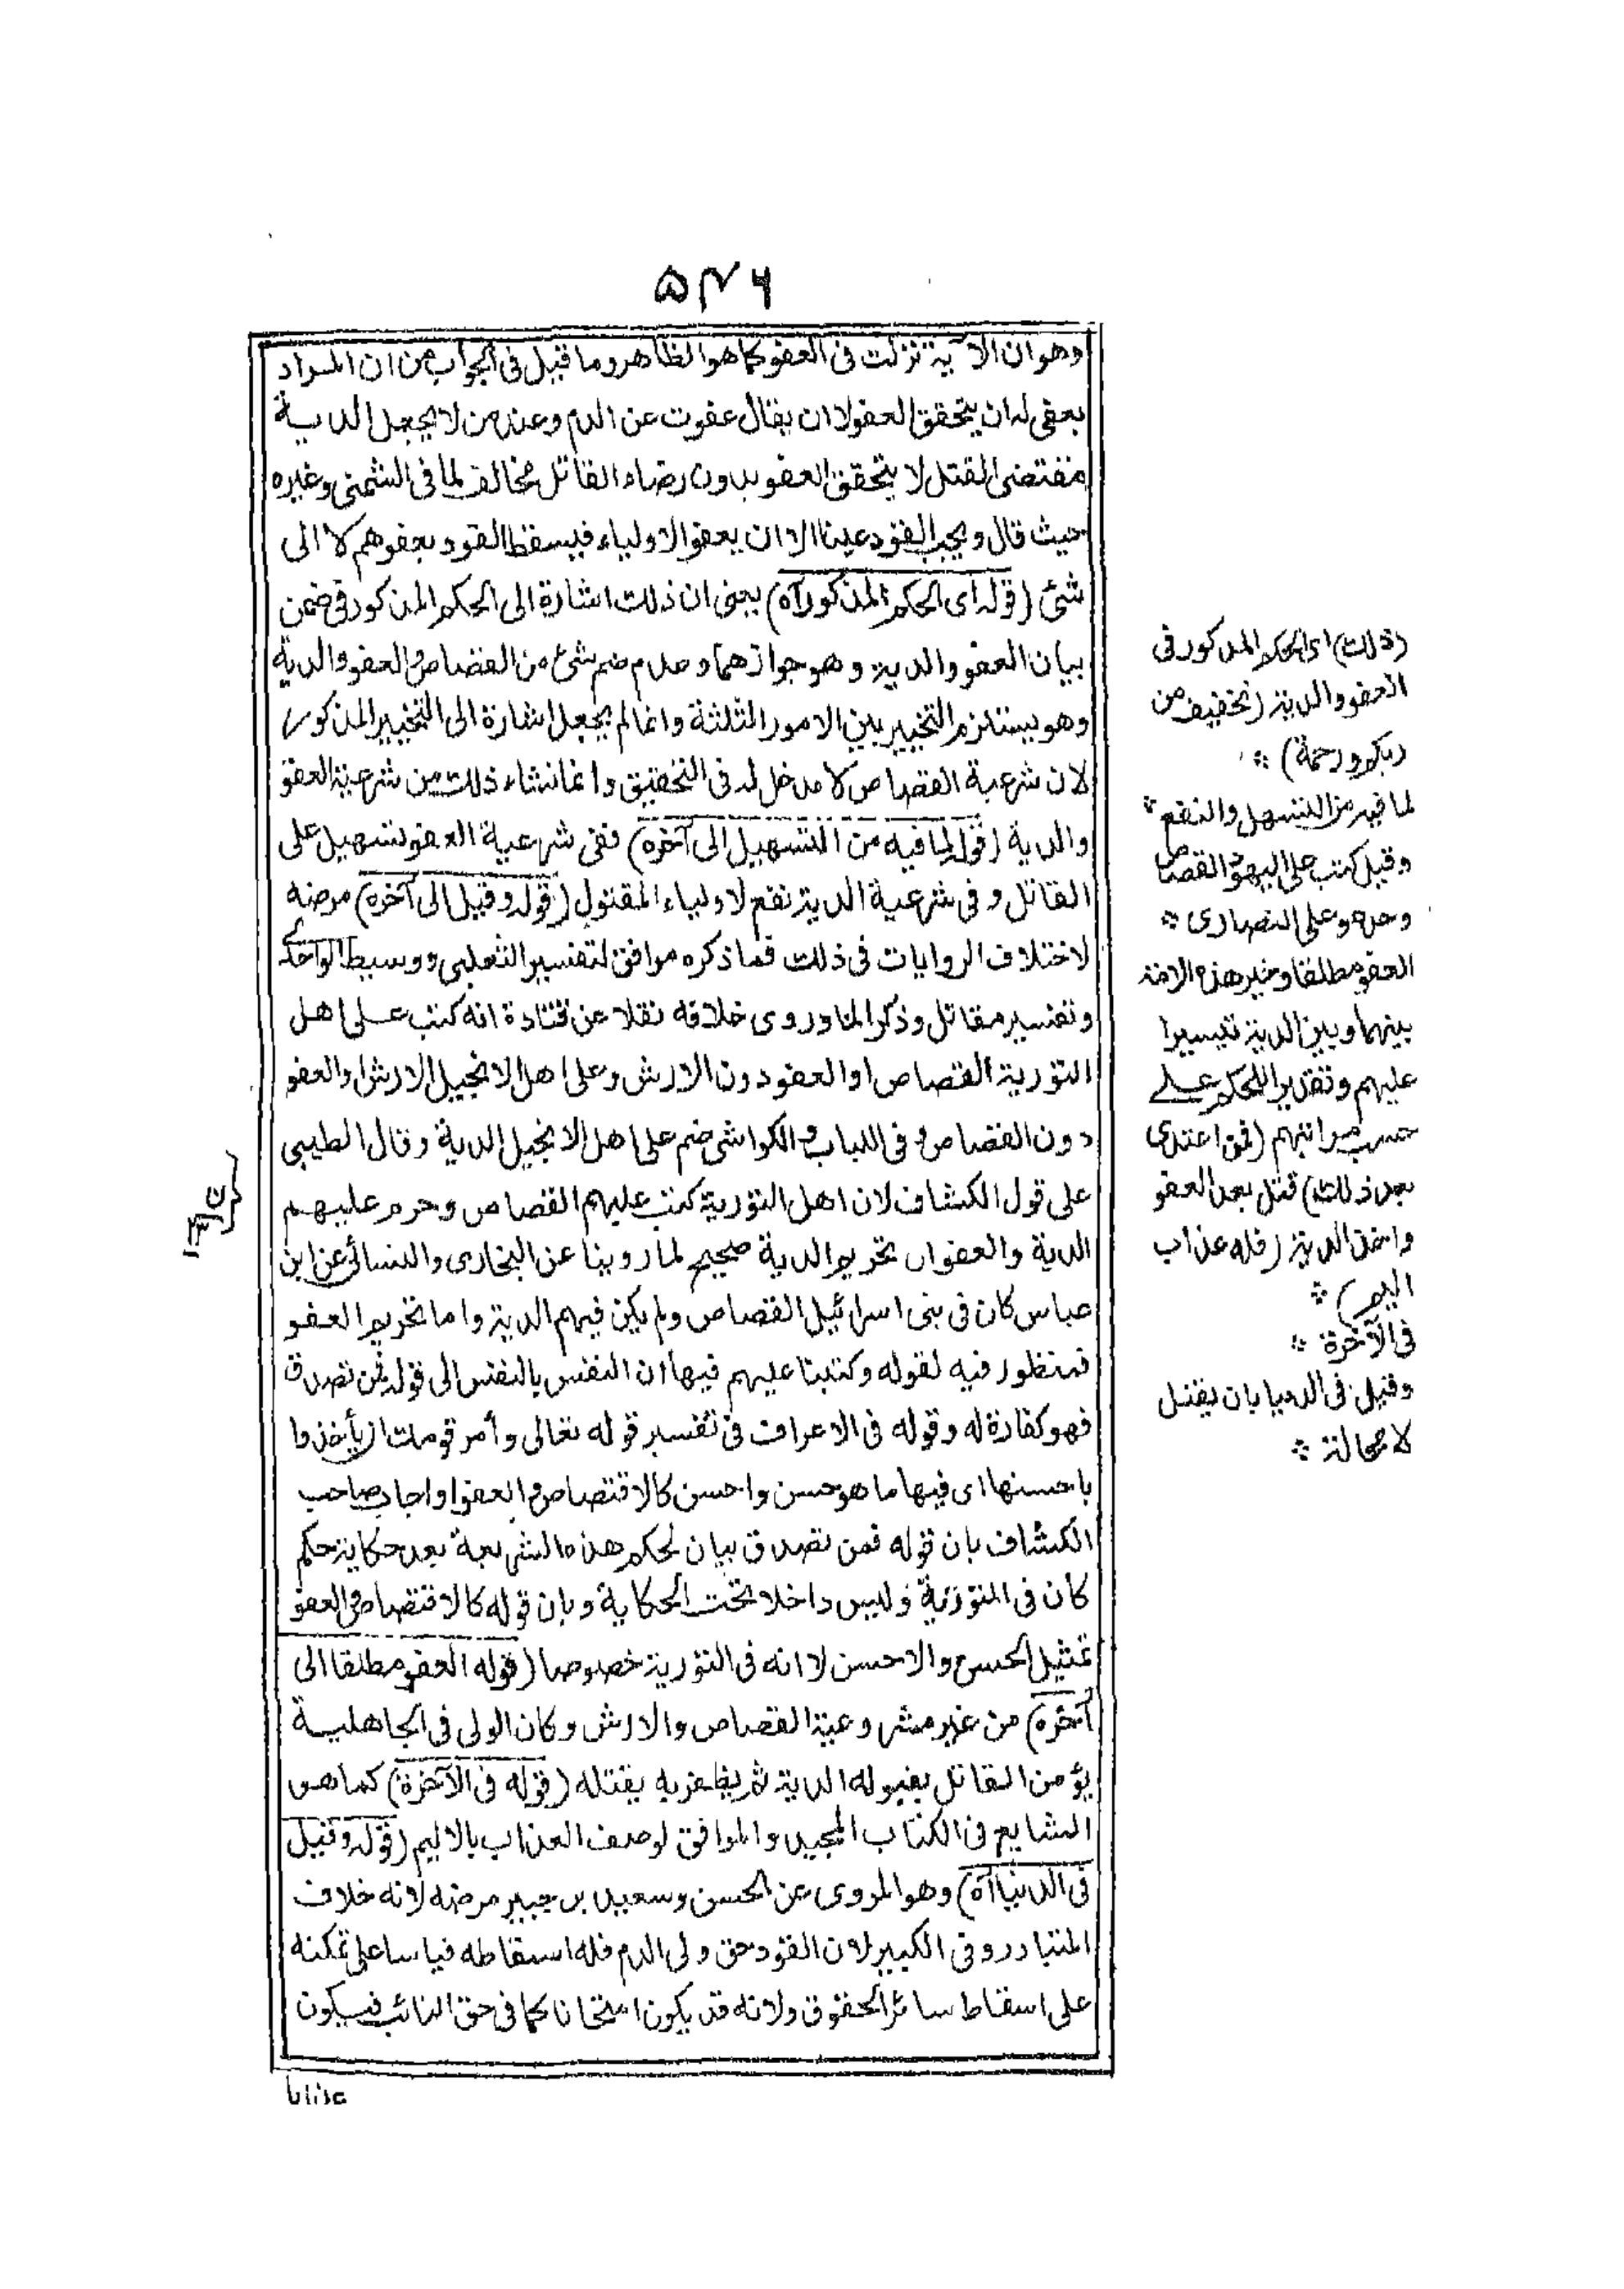 ۵۴۶
وهو ان الآية نزلت فى العفو كما هو الظاهر وما قيل فى الجواب من ان المراد
بعفى له ان يتحقق العفو لا ان يقال عفوت عن الدم وعند من لا يجعل الدية
مقتضى القتل لا يتحقق العفو بدون رضاء القاتل مخالف لما فى الشمنى وغيره
حيث قال ويجب القود عينا الا ان يعفو الاولياء فيسقط القود بعفوهم لا الى
شئ (قوله اى الحكم المذكور آه) يعنى ان ذلك اشارة الى الحكم المذكور فى ضمن
بيان العفو والدية وهو جوازهما وعدم ضم شئ من القصاص والعفو والدية
وهو يستلزم التخيير بين الامور الثلثة وانما لم يجعل اشارة الى التخيير المذكور
لان شرعية القصاص لا مدخل له فى التخفيق وانما نشاء ذلك من شرعية العفو
والدية (قوله لما فيه من التسهيل الى آخره) ففى شرعية العفو تسهيل على
القاتل وفى شرعية الدية نفع لاولياء المقتول (قوله وقيل الى آخره) مرضه
لاختلاف الروايات فى ذلك فما ذكره موافق لتفسير الثعلبى ووسيط الواحدى
وتفسير مقاتل وذكر الماوردى خلافه نقلا عن قتادة انه كتب على اهل
التورية القصاص او العفو دون الارش وعلى اهل الانجيل الارش او العفو
دون القصاص وفى اللباب والكواشى ضم على اهل الانجيل الدية وقال الطيبى
على قول الكشاف لان اهل التورية كتب عليهم القصاص وحرم عليهم
الدية والعفو ان تحريم الدية صحيح لما روينا عن البخارى والنسائى عن ابن
عباس كان فى بنى اسرائيل القصاص ولم يكن فيهم الدية واما تحريم العفو
فمنظور فيه لقوله وكتبنا عليهم فيها ان النفس بالنفس الى قوله فمن تصدق
فهو كفارة له وقوله فى الاعراف فى تفسير قوله تعالى وأمر قومك ان يأخذوا
باحسنها اى فيها ما هو حسن واحسن كالاقتصاص والعفو واجاب صاحب
الكشاف بان قوله فمن تصدق بيان لحكم هذه الشريعة بعد حكاية حكم
كان فى التورية وليس داخلا تحت الحكاية وبان قوله كالاقتصاص والعفو
تمثيل الحسن والاحسن لا انه فى التورية خصوصا (قوله العفو مطلقا الى
آخره) من غير مشروعية القصاص والارش وكان الولى فى الجاهلية
يؤمن القاتل بقبوله الدية ثم يظفر به بقتله (قوله فى الآخرة) كما هو
الشايع فى الكتاب المجيد والموافق لوصف العذاب بالاليم (قوله وقيل
فى الدنيا آه) وهو المروى عن الحسن وسعيد بن جبير مرضه لانه خلاف
المتبادر وفى الكبير لان القود حق ولى الدم فله اسقاطه قياسا على تمكنه
على اسقاط سائر الحقوق ولانه قد يكون امتحانا كما فى حق التائب فيكون
عذابا
(ذلك) اى الحكم المذكور فى
العفو والدية (تخفيف من
ربكم ورحمة) ؞
لما فيه من التسهيل والنفع ؞
وقيل كتب على اليهود القصاص
وحده وعلى النصارى ؞
العفو مطلقا وخير هذه الامة
بينهما وبين الدية تيسيرا
عليهم وتقديرا للحكم على
حسب مراتبهم (فمن اعتدى
بعد ذلك) قتل بعد العفو
واخذ الدية (فله عذاب
اليم) ؞
فى الآخرة ؞
وقيل فى الدنيا بان يقتل
لا محالة ؞